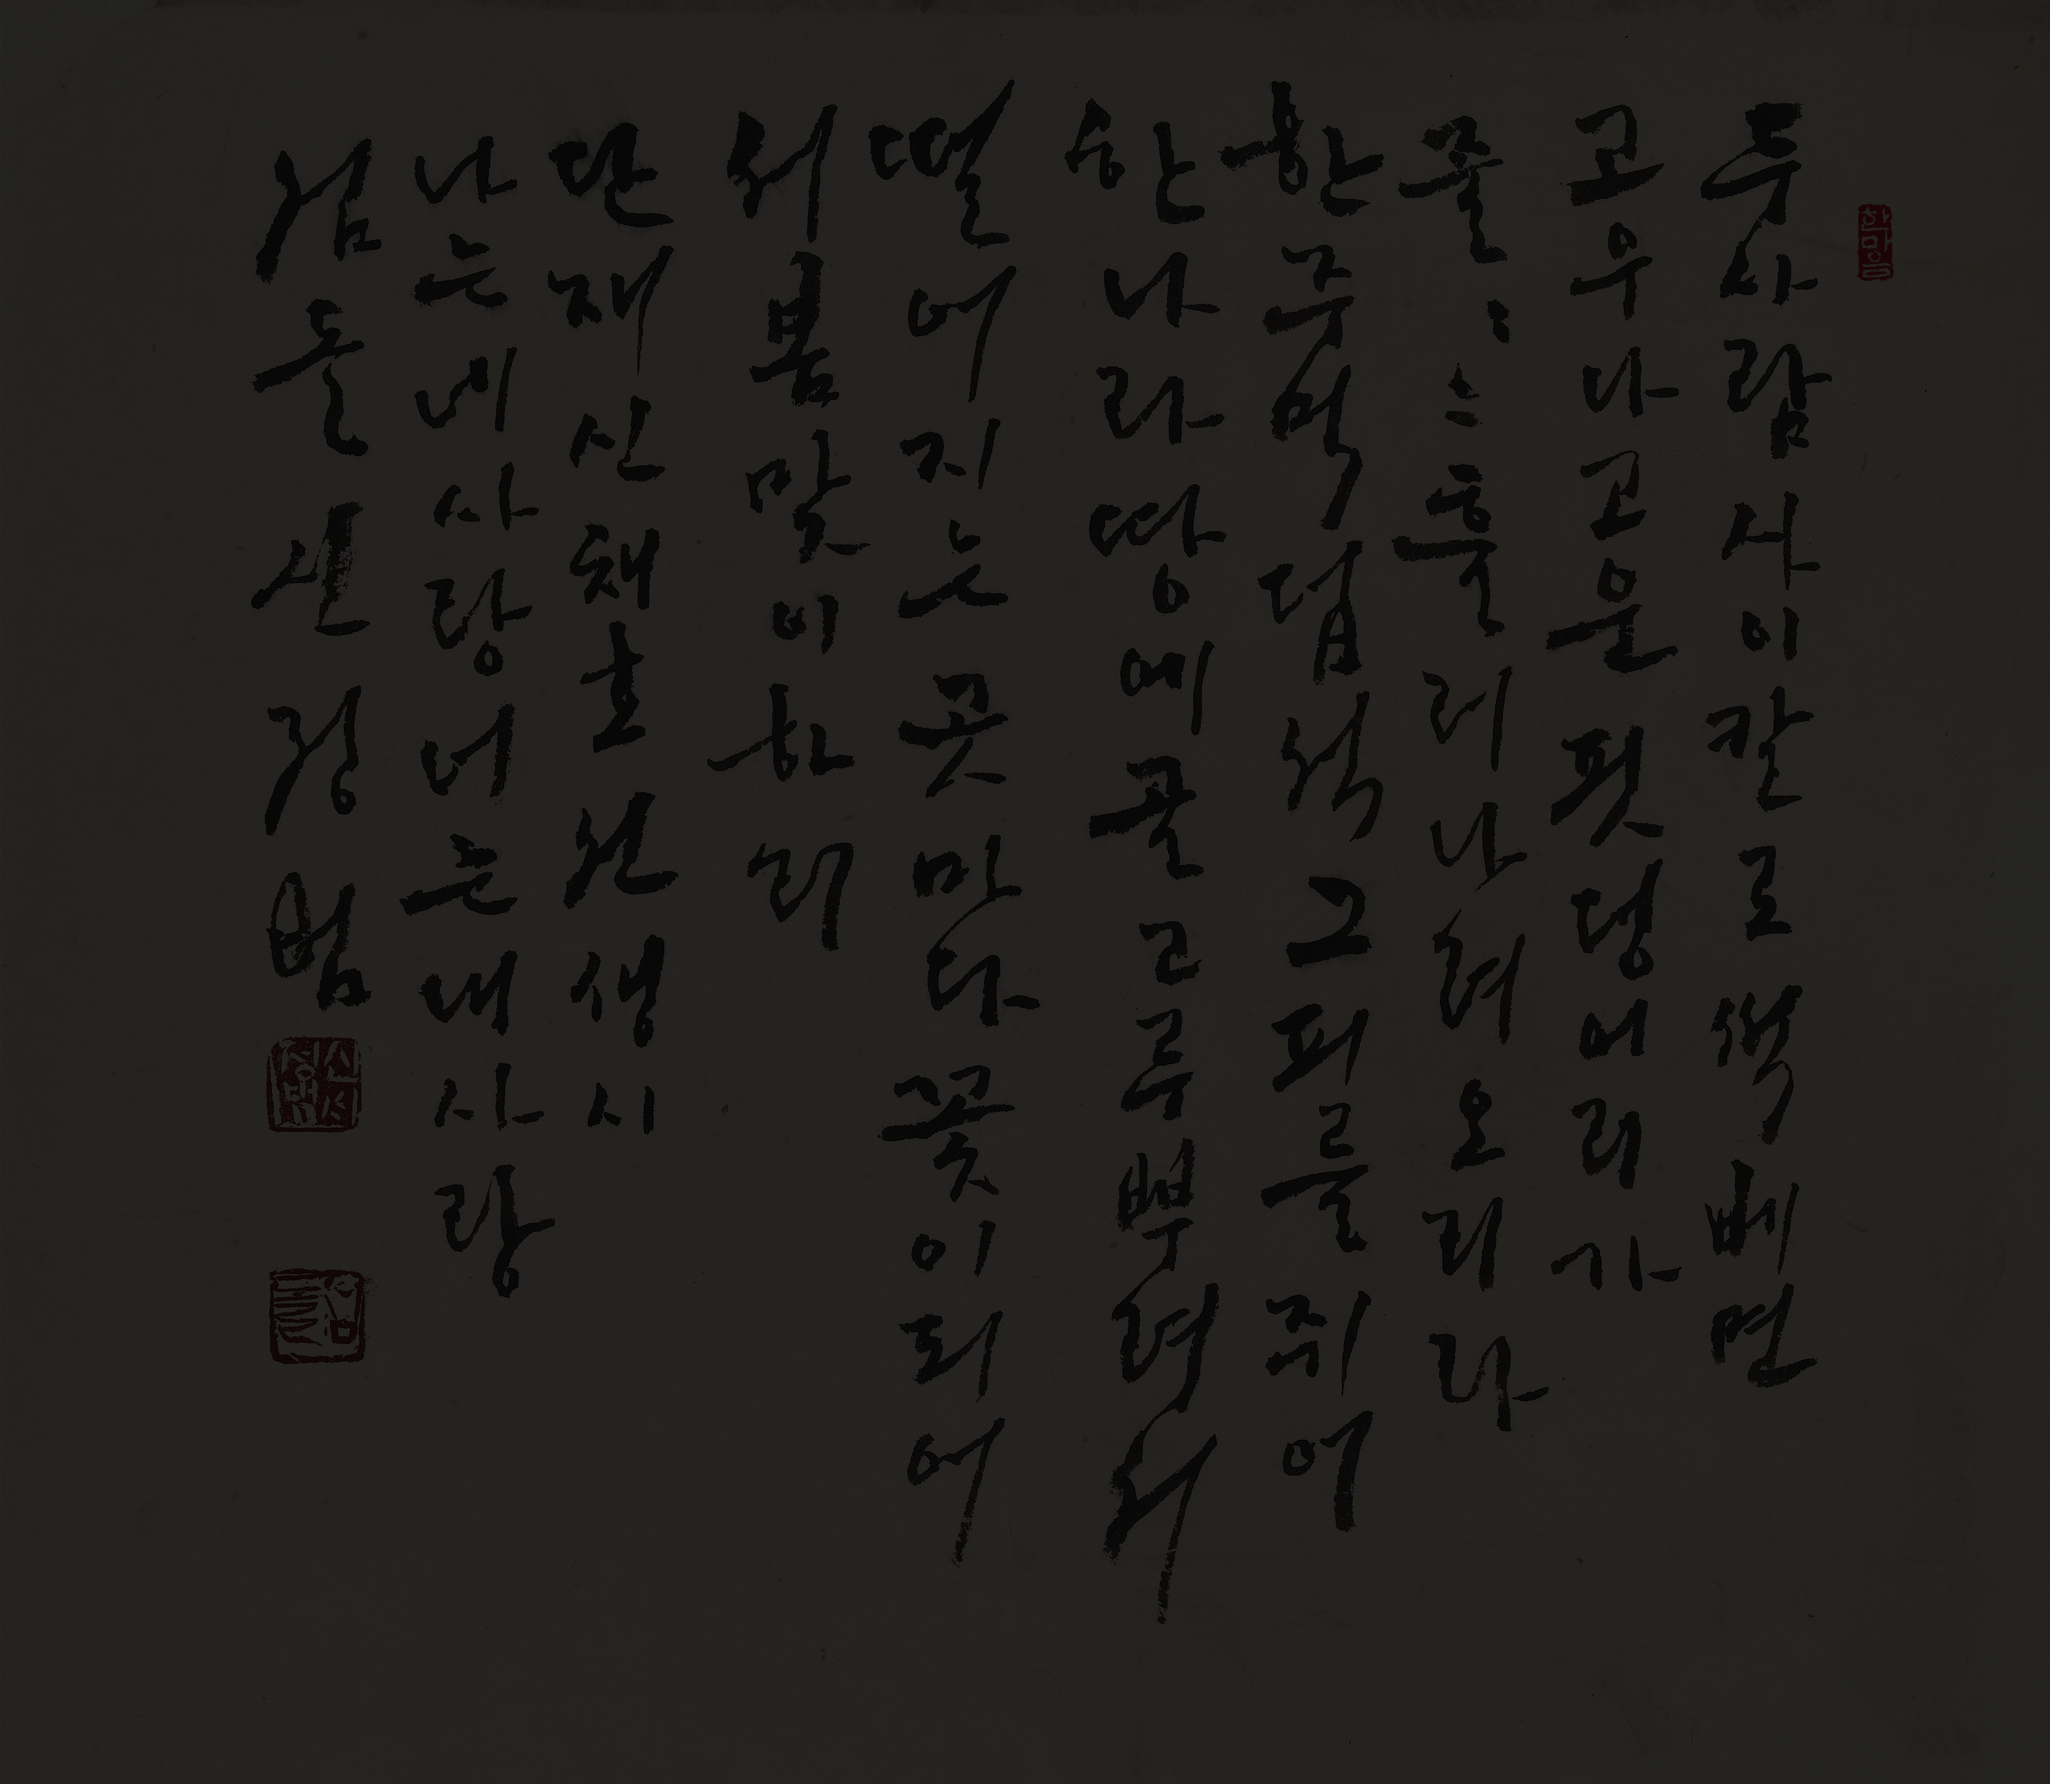 한마음
두 사람 사이 칼로 썩 베면
고우나 고운 핏덩어리가
줄〻〻 흘러나려 오리라
한 주먹 덥석 그 피를 쥐어
한 나라 땅에 골고루 뿌려서
떨어지는 곳마다 꽃이 되어
서 봄맞이 하리
단재 신채호 선생 시
나는 네 사랑 너는 내 사랑
검돌